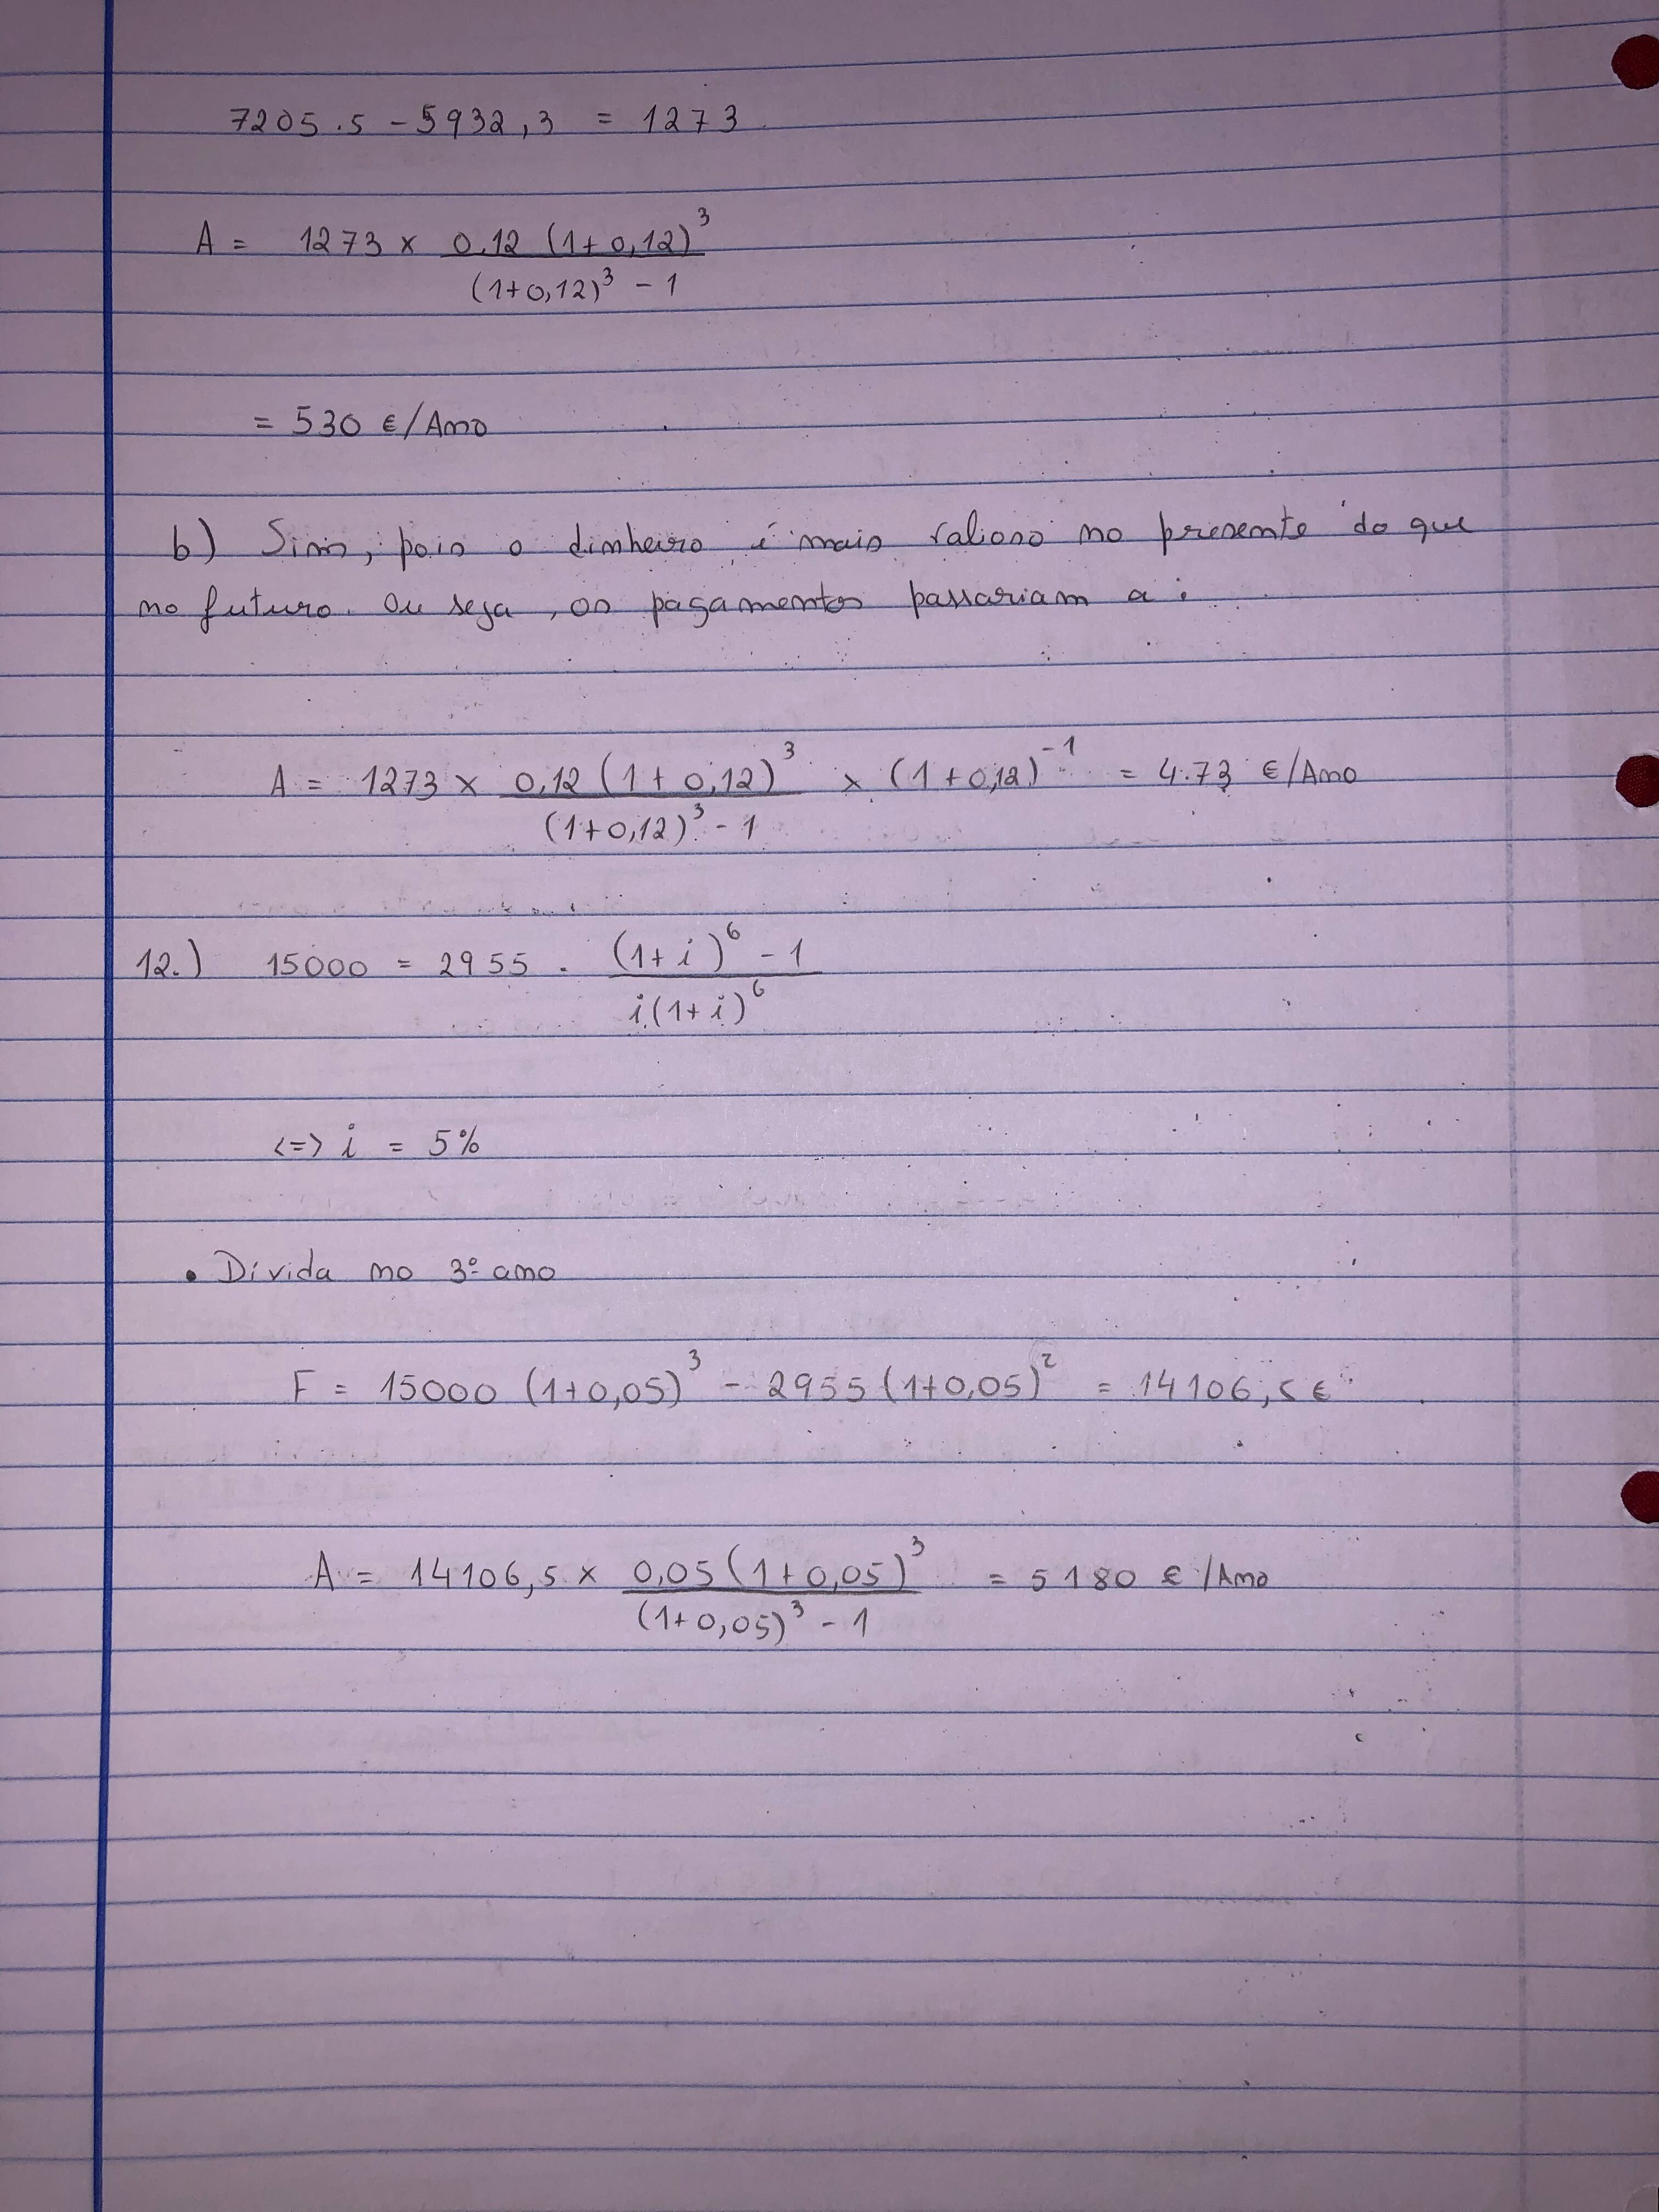 7205.5 - 5932,3 = 1273
A = 1273 × 0.12 (1+0,12)^3 / (1+0,12)^3 - 1
= 530 €/Ano
b) Sim, pois o dinheiro é mais valioso no presente do que
no futuro. Ou seja, os pagamentos passariam a:
A = 1273 × 0,12 (1+0,12)^3 / (1+0,12)^3 - 1 × (1+0,12)^-1 = 4.73 €/Ano
12.) 15000 = 2955 . (1+i)^6 - 1 / i(1+i)^6
<=> i = 5%
• Dívida no 3º ano
F = 15000 (1+0,05)^3 - 2955 (1+0,05)^2 = 14106,5 €
A = 14106,5 × 0,05 (1+0,05)^3 / (1+0,05)^3 - 1 = 5180 €/Ano